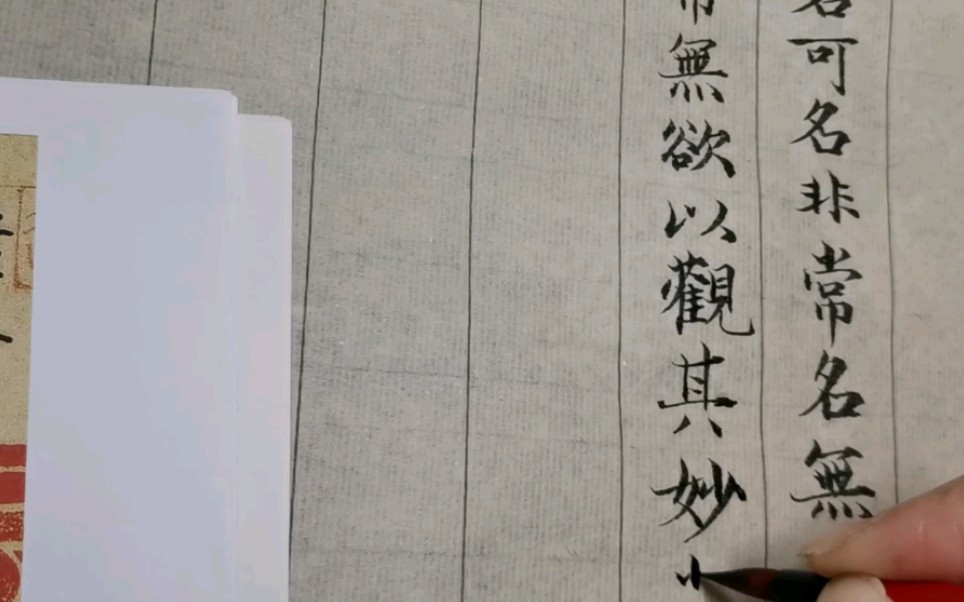 名可名非常名無
常無欲以觀其妙